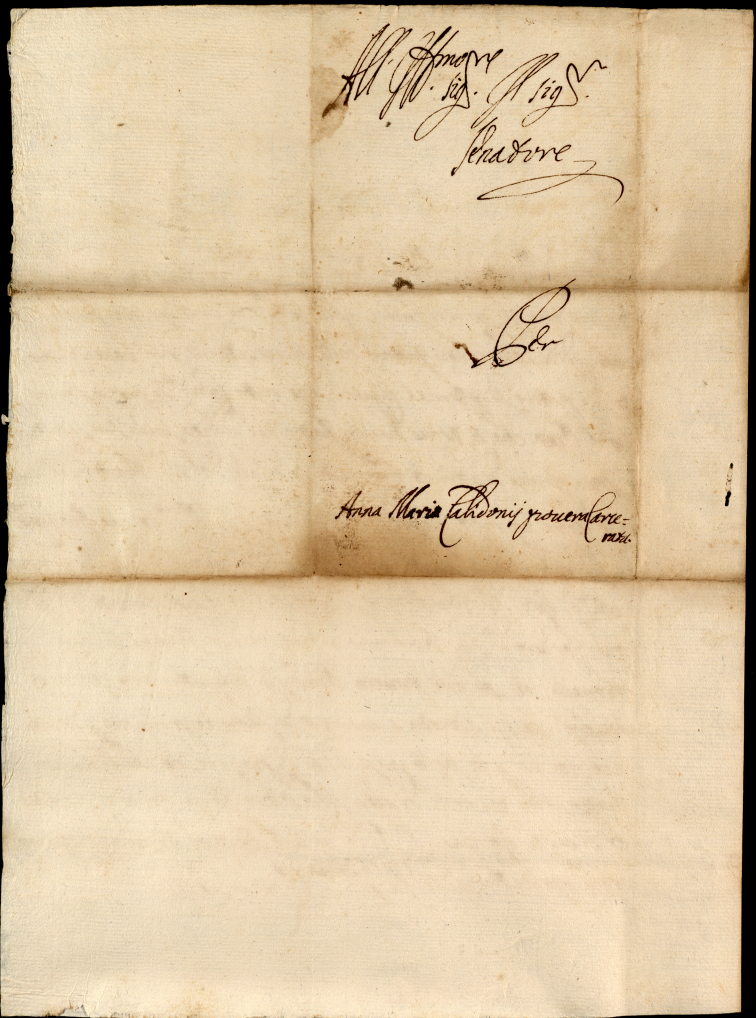 All. Illmo sig.re Il sig.r
Senatore
Per
Anna Maria Calidonij povera Carce=
rata.